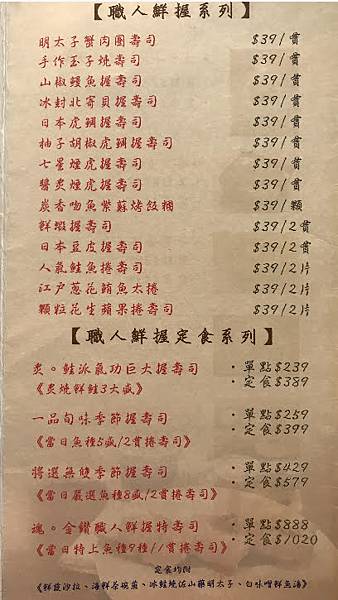 【職人鮮握系列】
明太子蟹肉團壽司 $39/貫
手作玉子燒壽司 $39/貫
山椒鰻魚握壽司 $39/貫
冰封北寄貝握壽司 $39/貫
日本虎鯛握壽司 $39/貫
柚子胡椒虎鯛握壽司 $39/貫
七星煙虎握壽司 $39/貫
醬炙煙虎握壽司 $39/貫
炭香吻魚紫蘇烤飯糰 $39/顆
鮮蝦握壽司 $39/2貫
日本豆皮握壽司 $39/2貫
人氣鮭魚捲壽司 $39/2片
江戶蔥花鮪魚太捲 $39/2片
顆粒花生蘋果捲壽司 $39/2片
【職人鮮握定食系列】
炙。鮭派氣功巨大握壽司 ·單點$239
·定食$389
《炙燒鮮鮭3大感》
一品旬味季節握壽司 ·單點$259
·定食$399
《當日魚種5感/2貫捲壽司》
將選無雙季節握壽司 ·單點$429
·定食$579
《當日嚴選魚種8感/2貫捲壽司》
魂。金鑽職人鮮握特壽司 ·單點$888
·定食$1020
《當日特上魚種9種/1貫捲壽司》
定食均附
沙拉、海鮮茶碗蒸、冰鮭燒佐山藥明太子、白味噌鮮魚湯》